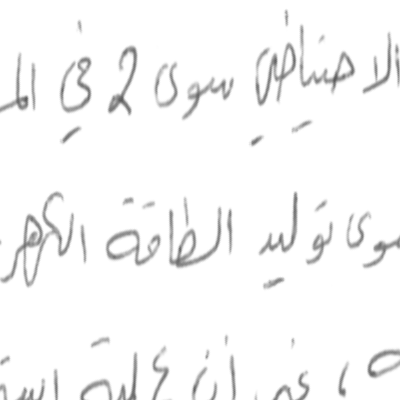 الاحتياطي سوى 2 في الم
سوى توليد الطاقة الكهر
ة ، غير أن عملية است